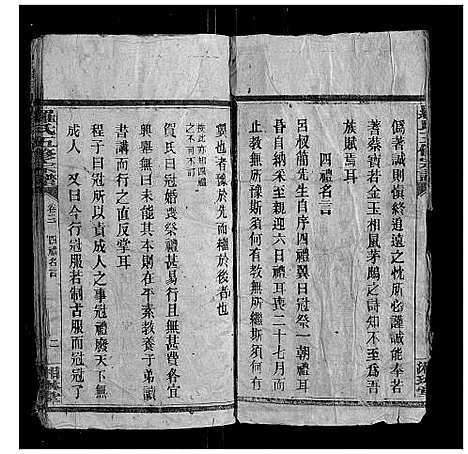 偽著誠則愼終追遠之忱所必謹誠能奉若
著蔡寶若金玉相鼠茅鴟之詩知不至爲吾
族賦焉耳
四禮名言
呂叔簡先生自序四禮翼曰冠祭一朝禮耳
昏自納采至親迎六日禮耳喪二十七月而
止教無所豫斯須何有教無所繼斯須何有
翼也者豫於先而繼於後者也
按此亦知四禮
之不可不訂
賀氏曰冠婚喪祭禮甚易行且無甚費各宜
興舉無已其本則在平素教養于弟讀
書講而行之直反掌耳
程子曰冠所以責成人之事冠禮廢天下無
成人 又曰今行冠服若制古服而冠冠了
羅氏五修宗譜
卷二
四禮名言
二